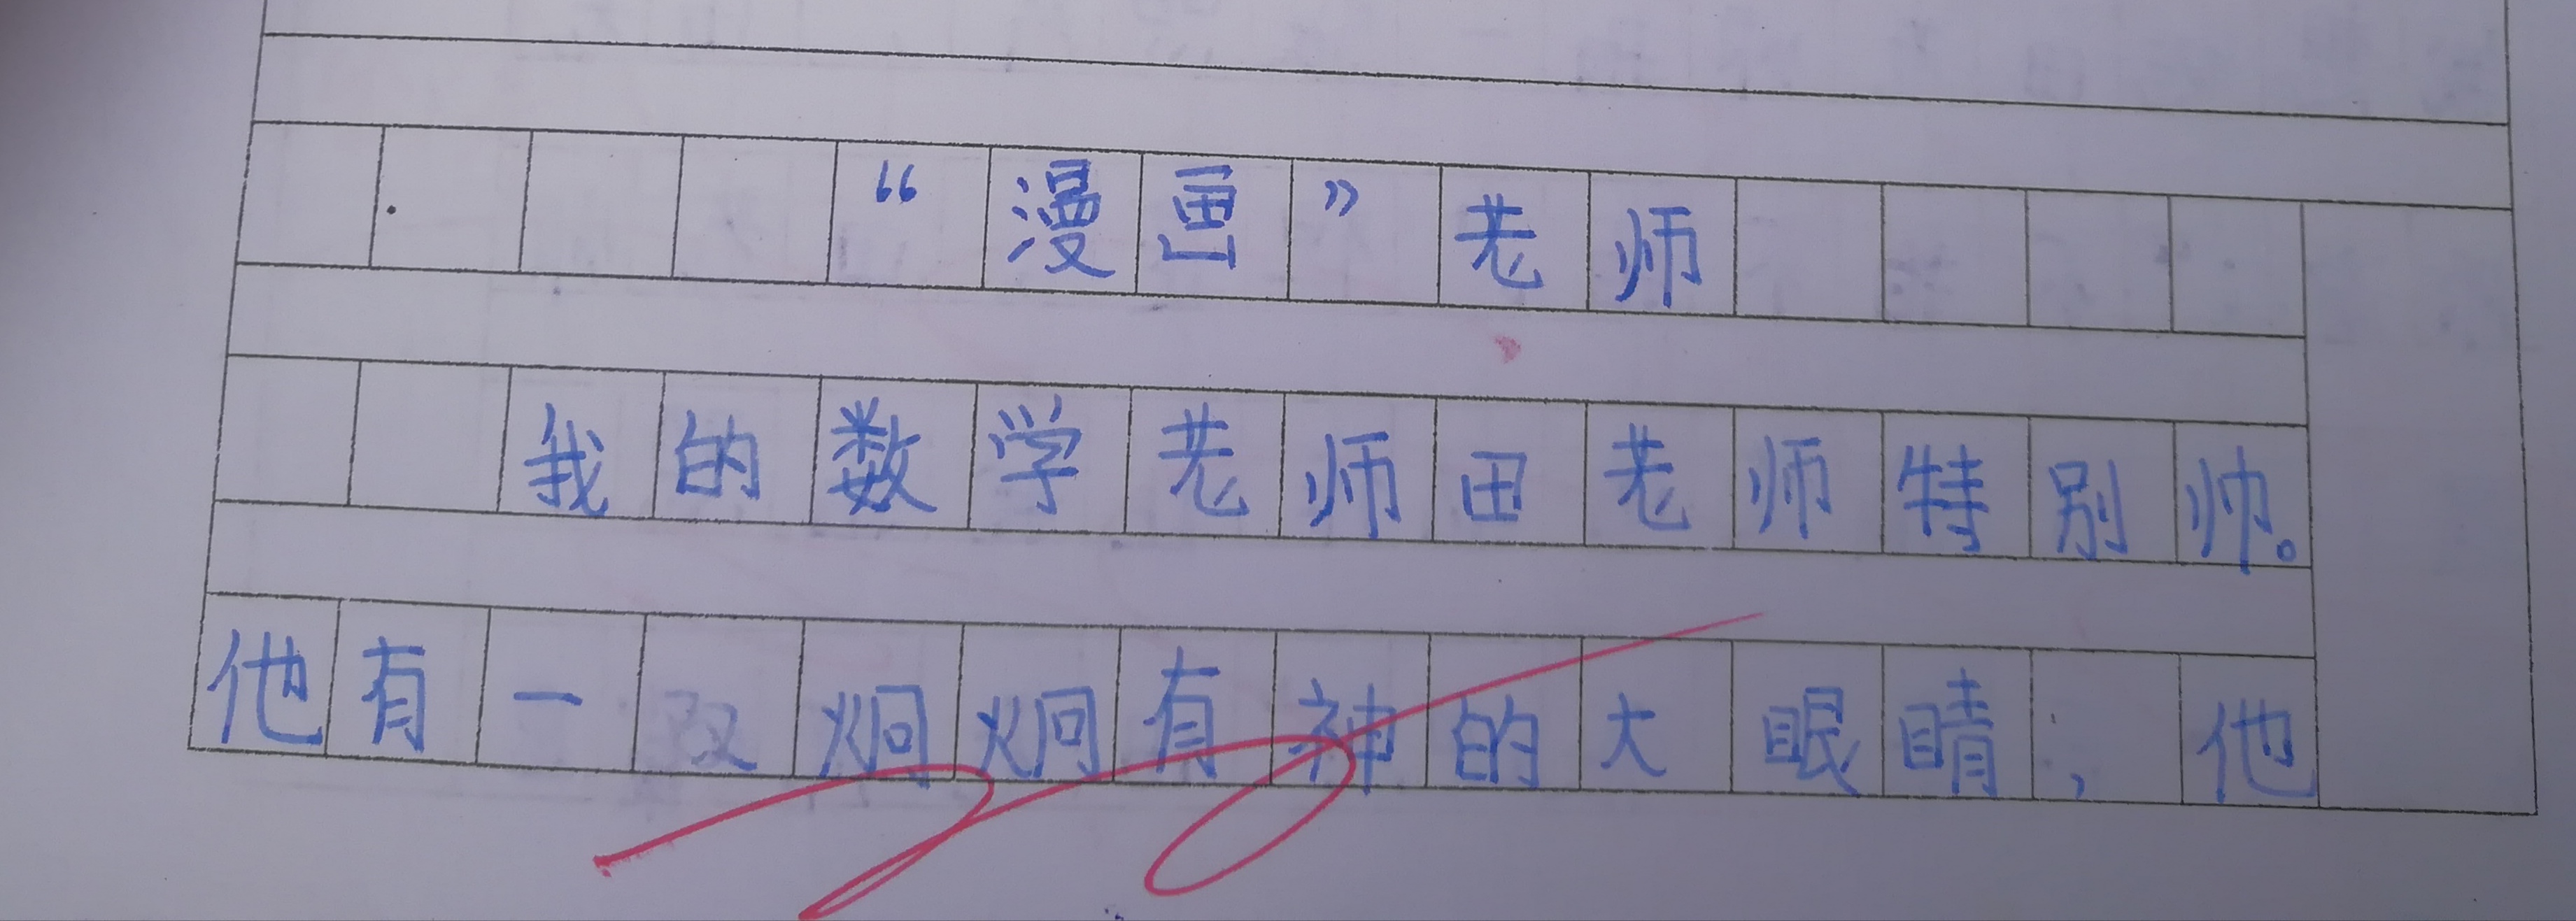 “漫画”老师
我的数学老师田老师特别帅。
他有一双炯炯有神的大眼睛；他